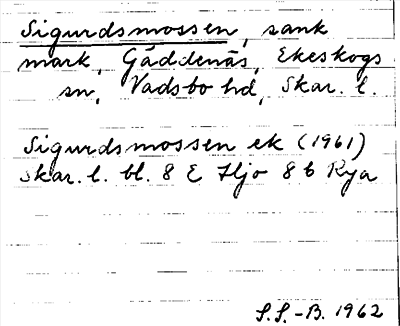 Sigurdsmossen, sank
mark, Gäddenäs, Ekeskogs
sn, Vadsbo hd, Skar. l.
Sigurdsmossen ek (1961)
Skar. l. bl. 8 E Hjo 8 b Rya
S.S.-B. 1962